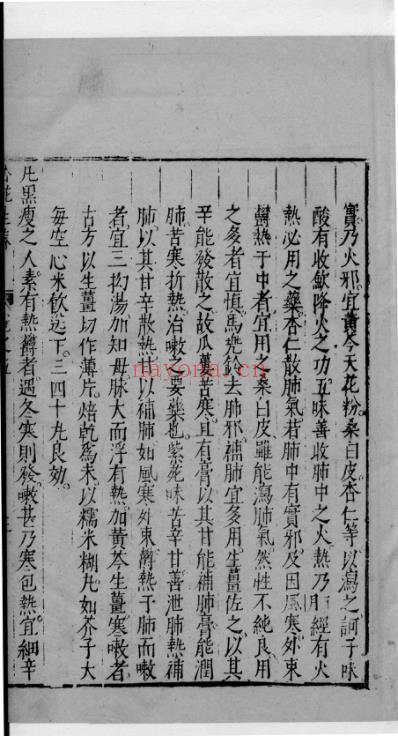 實乃火邪宜黃芩天花粉桑白皮杏仁等以瀉之訶子味
酸有收斂降火之功五味善收肺中之火熱乃肺經有火
熱必用之藥杏仁散肺氣若肺中有實邪及因風寒外束
鬱熱于中者宜用之桑白皮雖能瀉肺氣然性不純良用
之多者宜慎馬兜鈴去肺邪補肺宜多用生薑佐之以其
辛能發散之故瓜蔞苦寒且有膏以其甘能補肺膏能潤
肺苦寒折熱治嗽之要藥也紫菀味苦辛甘善泄肺熱補
肺以其甘辛散熱以補肺如風寒外束鬱熱于肺而嗽
者宜三拗湯加知母脉大而浮有熱加黃芩生薑寒嗽者
古方以生薑切作薄片焙乾為末以糯米糊丸如芥子大
每空心米飲送下三四十丸良効
凡黑瘦之人素有熱鬱者遇冬寒則發嗽甚乃寒包熱宜細辛
nayona.cn